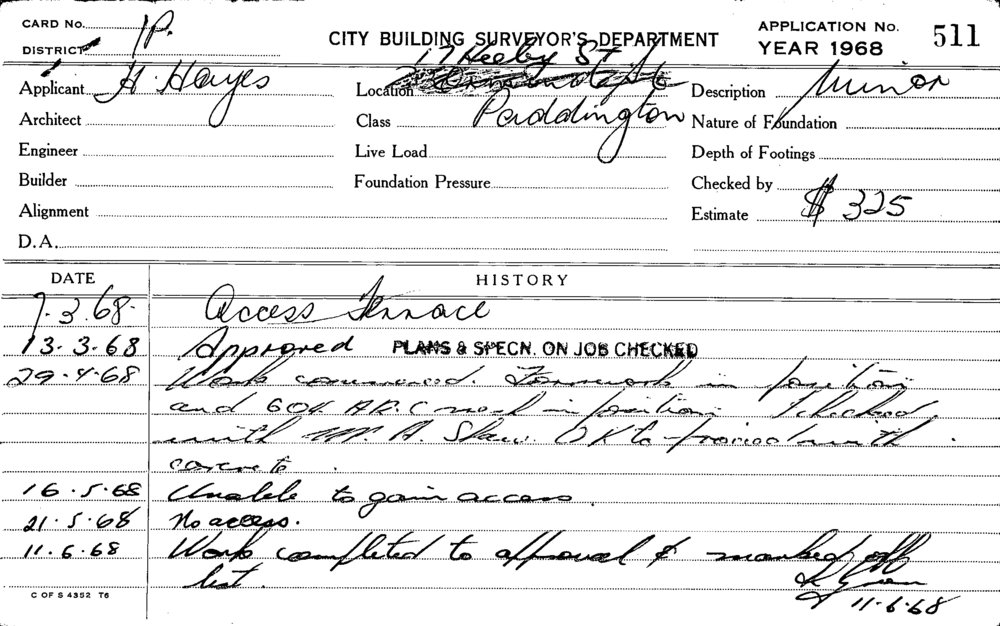 CARD No.
DISTRICT 1P.
CITY BUILDING SURVEYOR'S DEPARTMENT
APPLICATION No. 511
YEAR 1968
17 Heeley St
Applicant H. Hayes
Location
Description Minor
Architect
Class Paddington
Nature of Foundation
Engineer
Live Load
Depth of Footings
Builder
Foundation Pressure
Checked by
Alignment
Estimate $ 325
D.A.
DATE HISTORY
7.3.68. Access Terrace
13.3.68 Approved PLANS & SPECN. ON JOB CHECKED
29.4.68 Work commenced. Formwork in position
and 604 A.R.C mesh in position. I checked
with Mr. A. Shaw. OK to proceed with
concrete.
16.5.68 Unable to gain access.
21.5.68 No access.
11.6.68 Work completed to approval & marked off
list.
11.6.68
C OF S 4352 T6